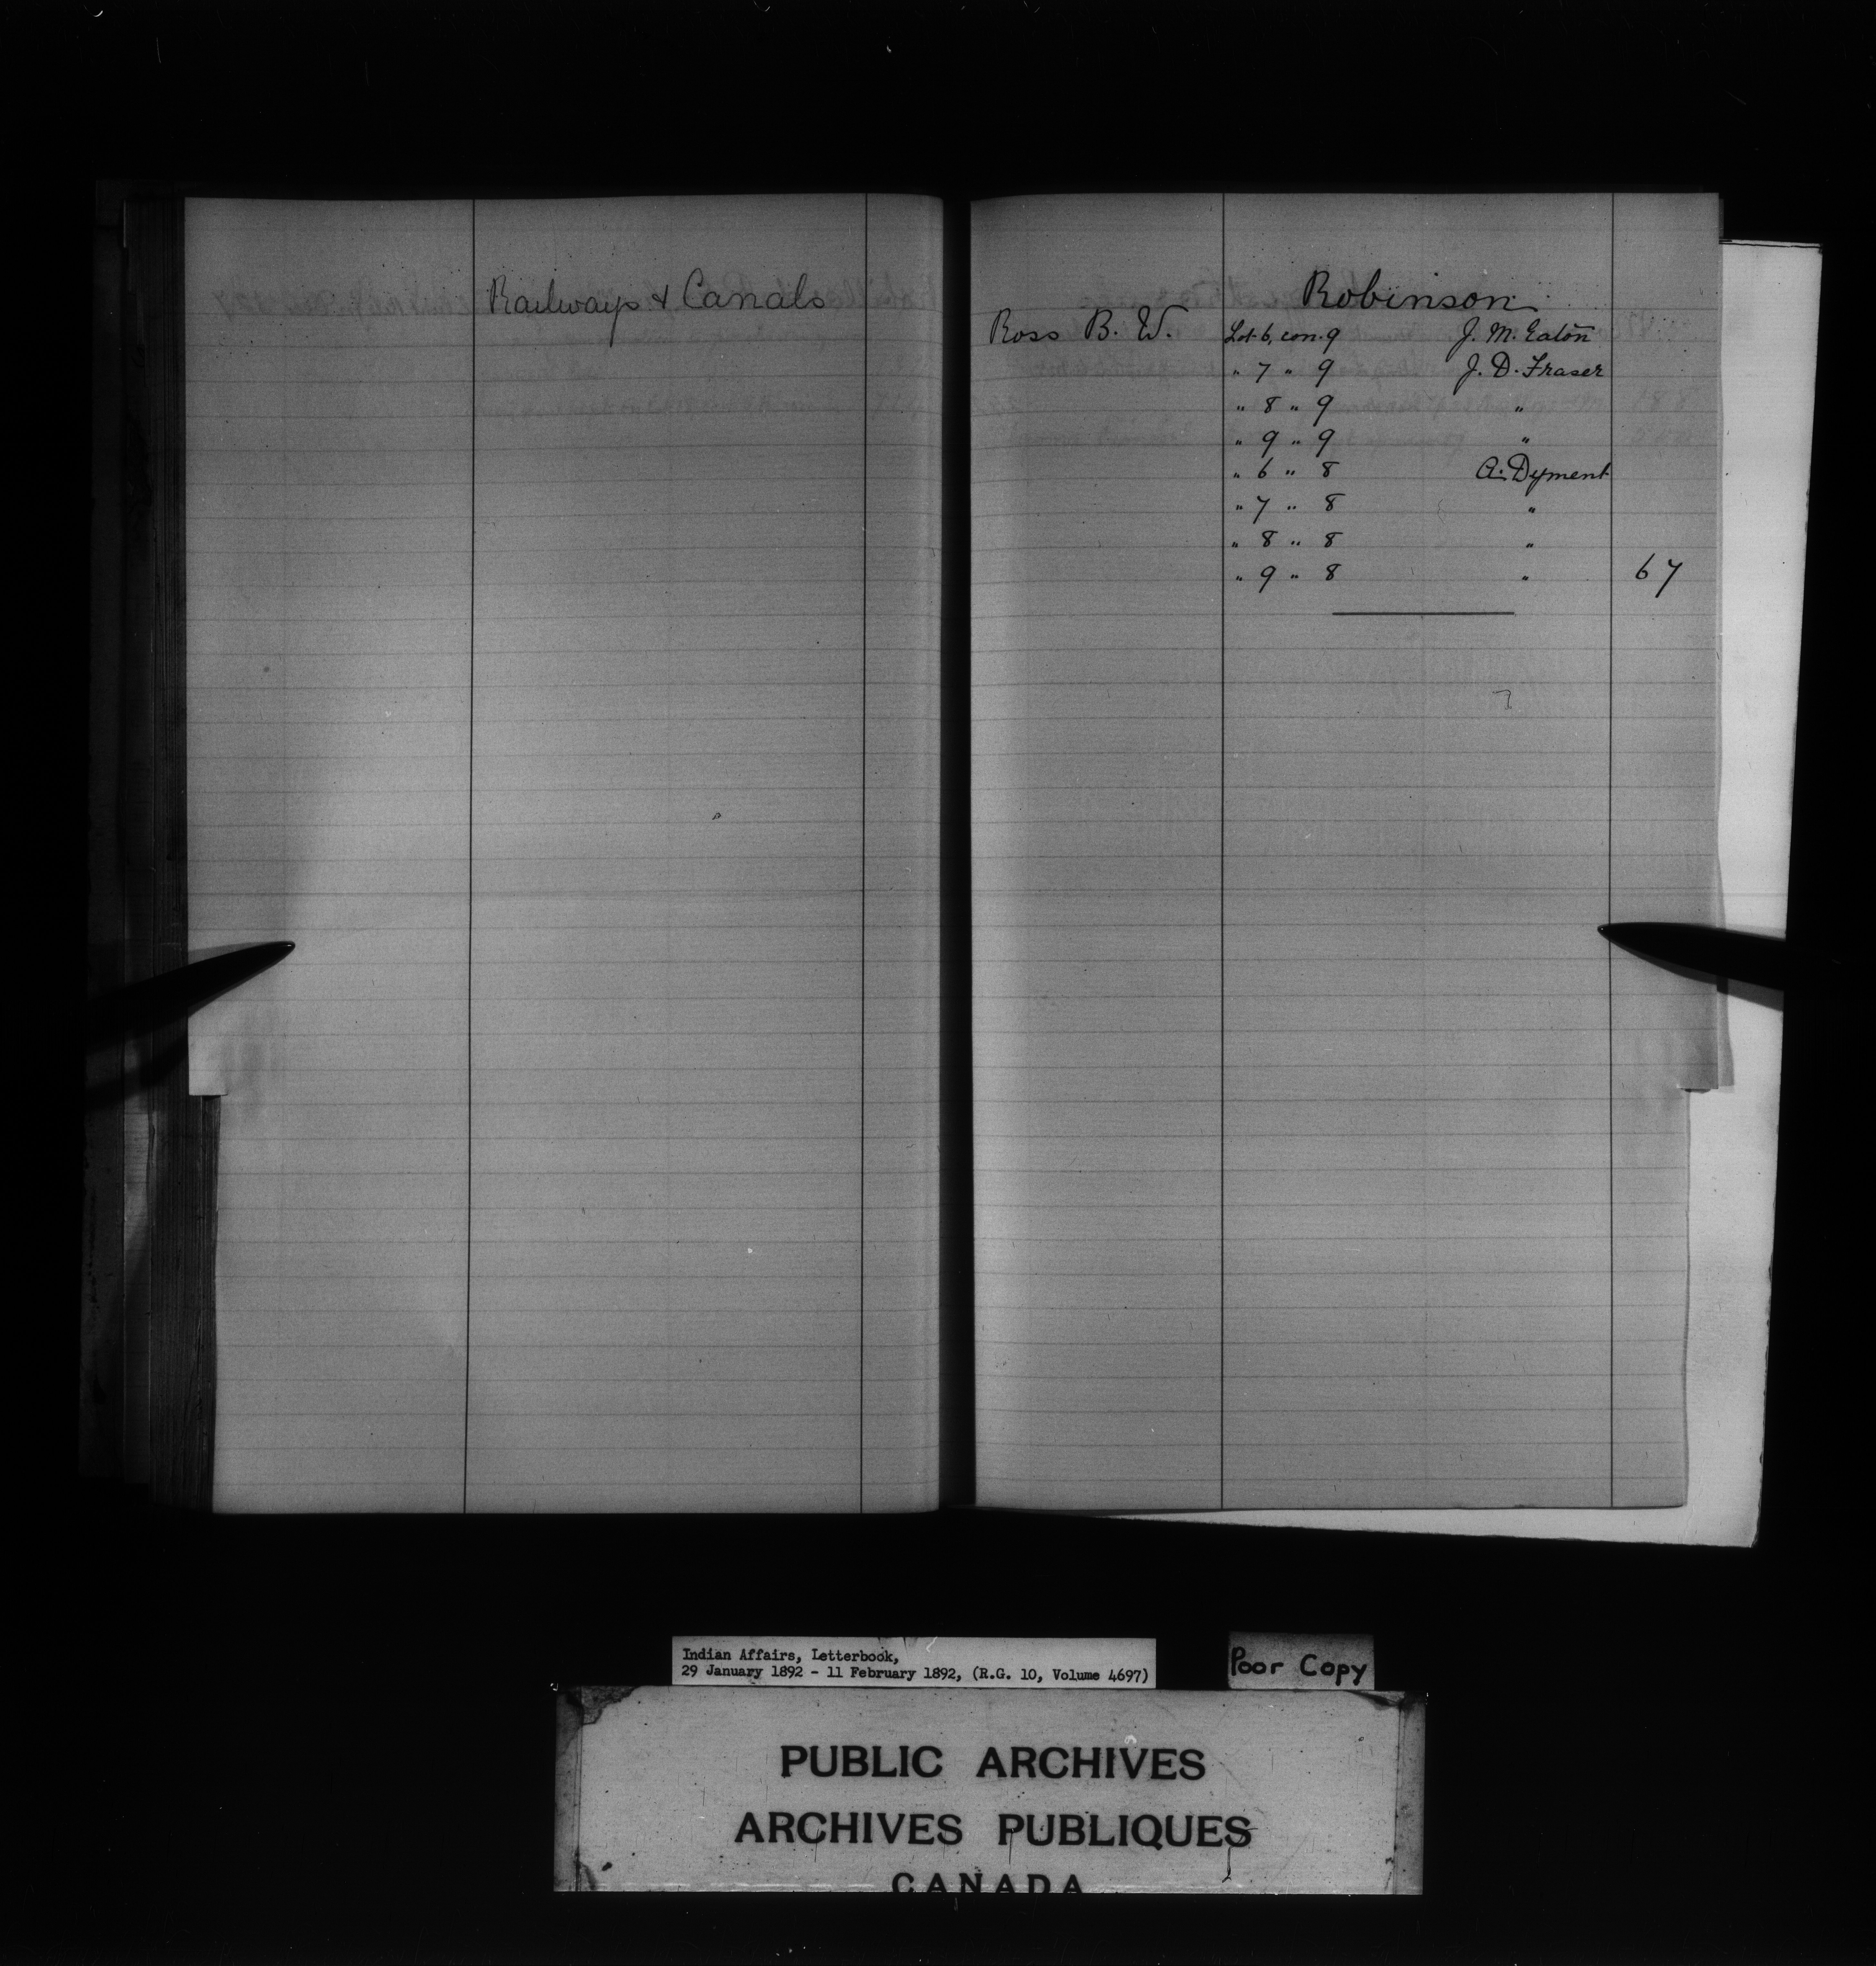 Railways & Canals
Robinson
Ross B. W. Lot 6, con. 9 J. M. Eaton
" 7 " 9 J. D. Fraser
" 8 " 9 "
" 9 " 9 "
" 6 " 8 A. Dyment
" 7 " 8 "
" 8 " 8 "
" 9 " 8 " 67
Indian Affairs, Letterbook,
29 January 1892 - 11 February 1892, (R.G. 10, Volume 4697)
Poor Copy
PUBLIC ARCHIVES
ARCHIVES PUBLIQUES
CANADA